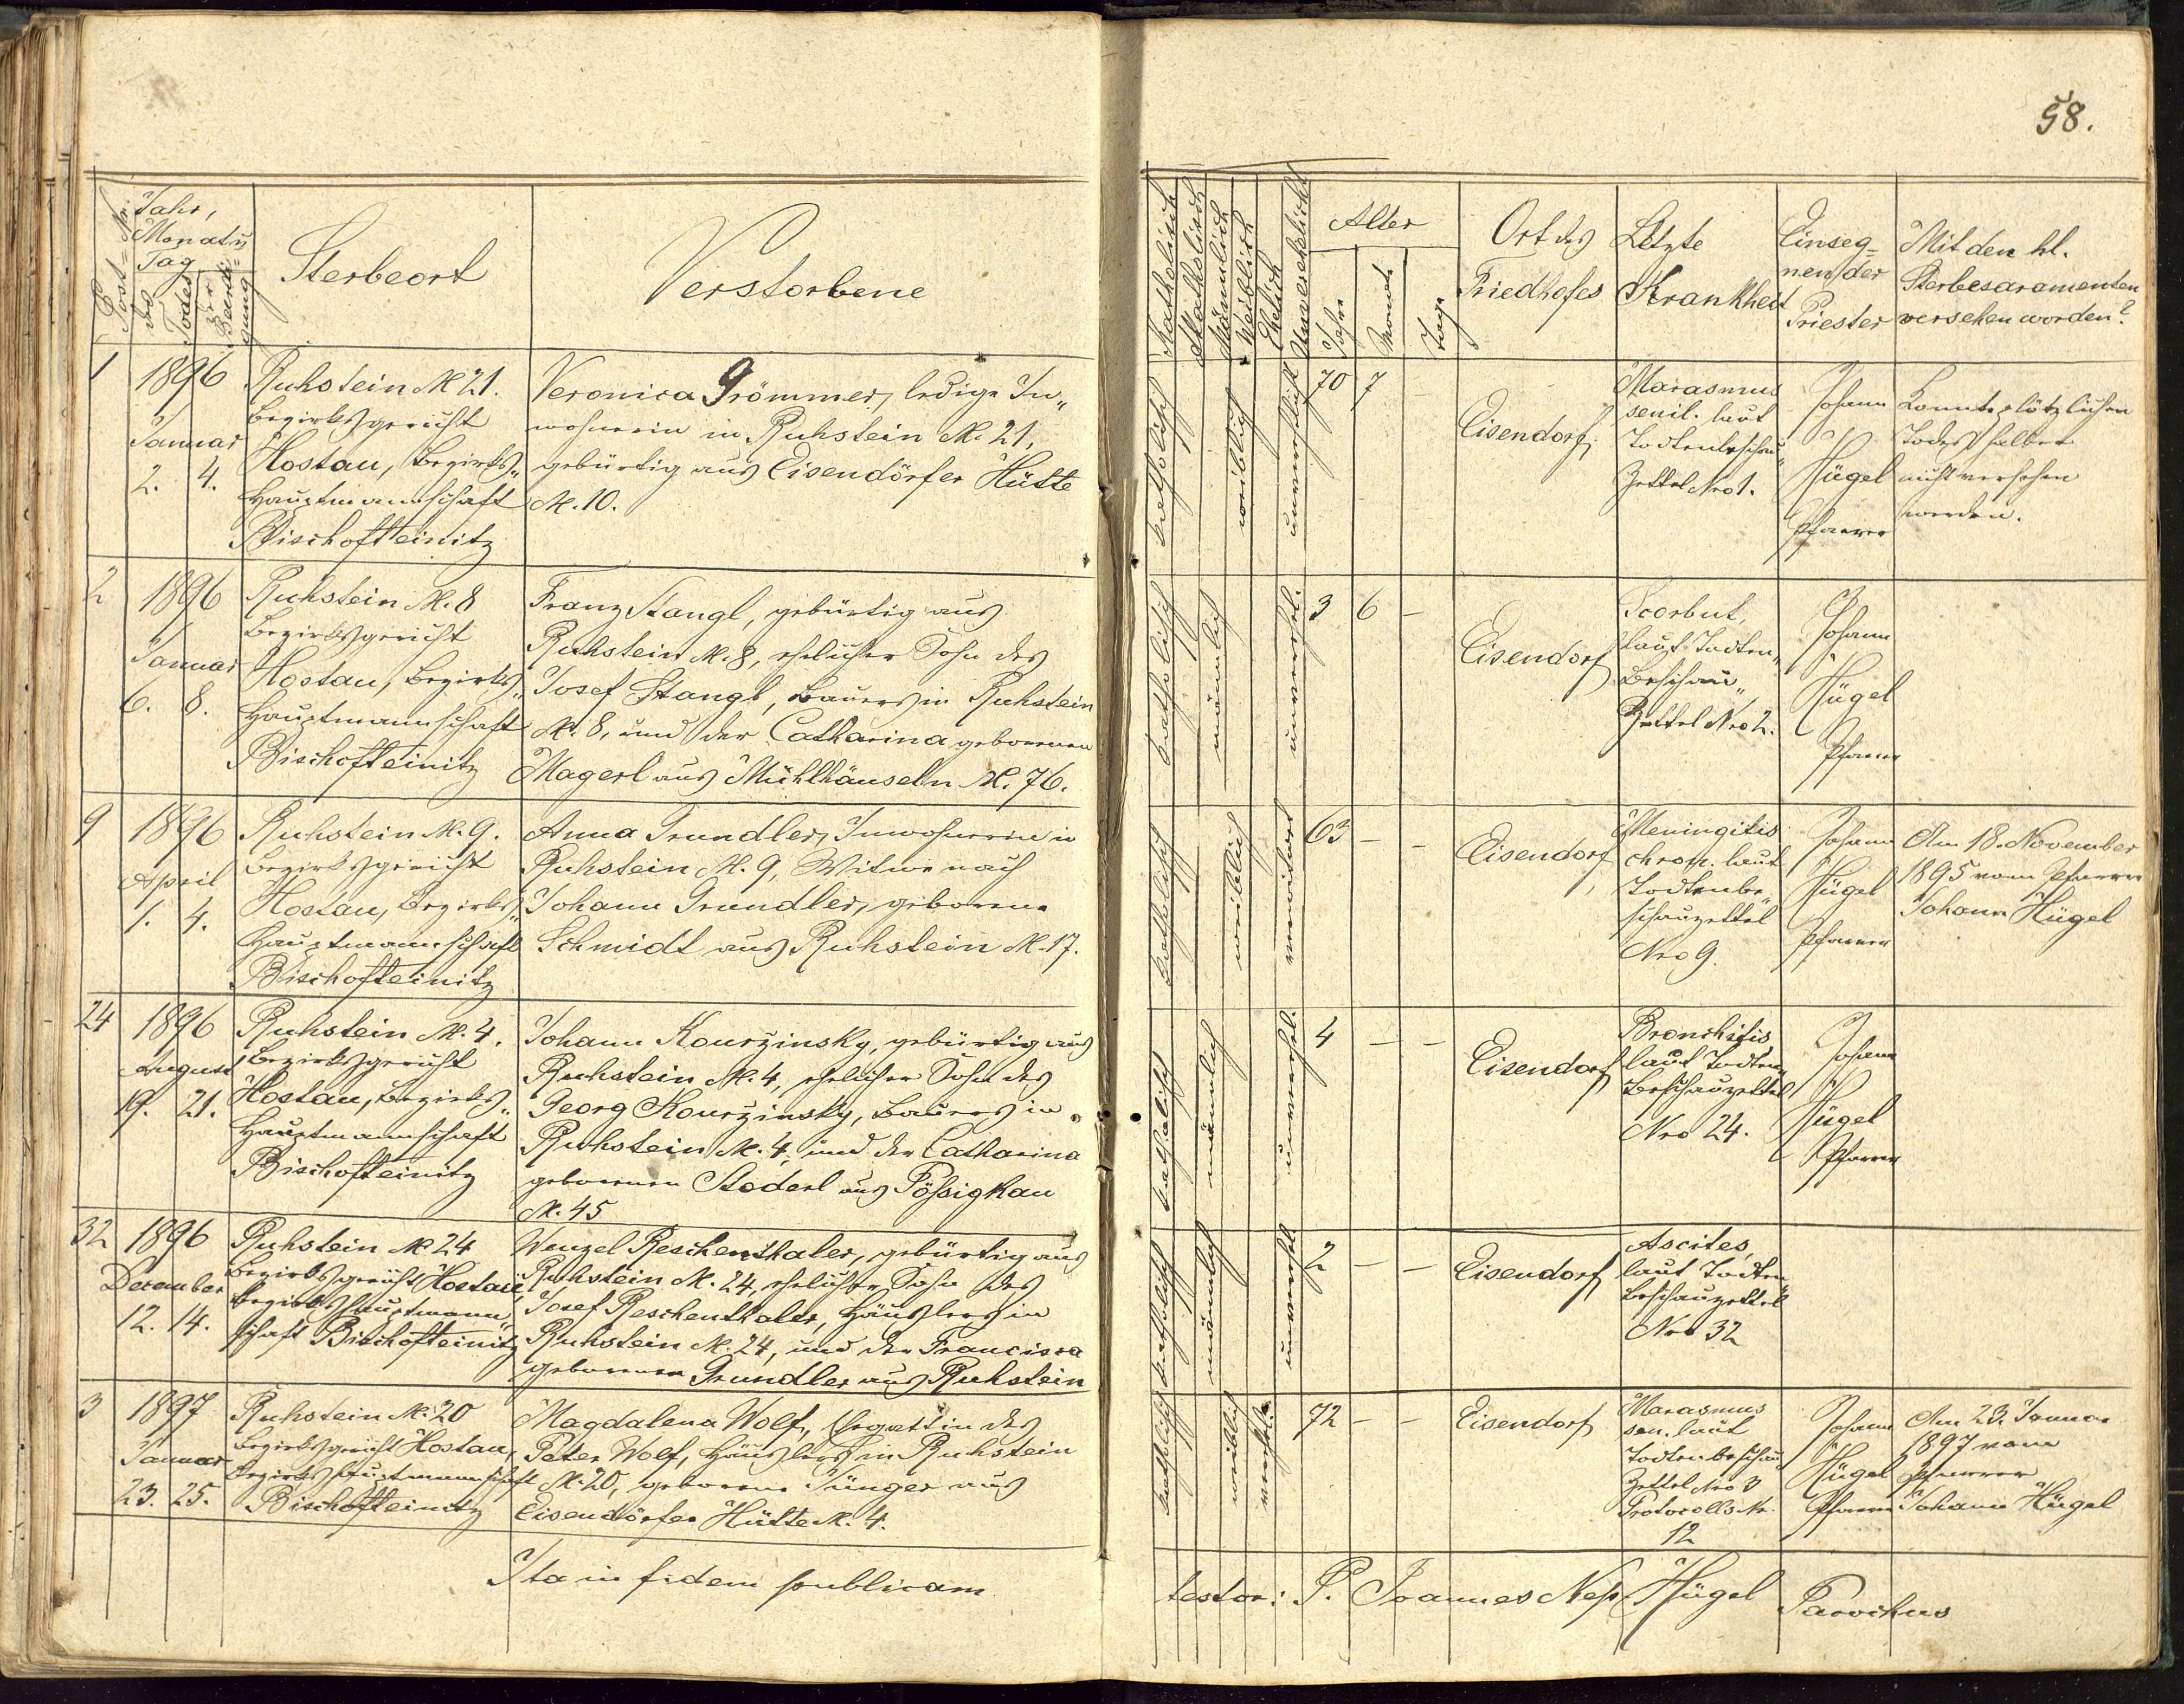 58.
Post-Nr.
Jahr,
Monat u
Tag
des Todes
der Beerdigung
Sterbeort
Verstorbene
Katholisch
Akatholisch
Männlich
Weiblich
Ehelich
Unverehelicht
Alter
Jahre
Monate
Tage
Ort des
Friedhofes
Letzte
Krankheit
Einseg-
nender
Priester
Mit den hl.
Sterbesacramenten
versehen worden?
1
1896
Januar
2. 4.
Ruhstein N. 21.
Bezirksgericht
Hostau, Bezirks„
Hauptmannschaft
Bischofteinitz
Veronica Grömmer, ledige In„
wohnerin in Ruhstein N. 21,
gebürtig aus Eisendörfer Hütte
N. 10.
katholisch
weiblich
unverehelicht
70 7
Eisendorf
Marasmus
senil. laut
Todtenbeschau„
Zettel Nro 1.
Johann
Hügel
Pfarrer
Konnte plötzlichen
Todes halber
nicht versehen
werden.
2
1896
Januar
6. 8.
Ruhstein N. 8
Bezirksgericht
Hostau, Bezirks„
Hauptmannschaft
Bischofteinitz
Franz Stangl, gebürtig aus
Ruhstein N. 8, ehelicher Sohn des
Josef Stangl, Bauers in Ruhstein
N. 8, und der Catharina gebornen
Magerl aus Mühlhäuseln N. 76.
katholisch
männlich
unverehel.
3 6 –
Eisendorf
Scorbut,
laut Todten„
Beschau„
Zettel Nro 2.
Johann
Hügel
Pfarrer
9
1896
April
1. 4.
Ruhstein N. 9.
Bezirksgericht
Hostau, Bezirks„
Hauptmannschaft
Bischofteinitz
Anna Grundler, Inwohnerin in
Ruhstein N. 9, Witwe nach
Johann Grundler, geborene
Schmidt aus Ruhstein N. 17.
katholisch
weiblich
verwitwet
63 – –
Eisendorf
Meningitis
chron. laut
Todtenbe„
schauzettel
Nro 9.
Johann
Hügel
Pfarrer
Am 18. November
1895 vom Pfarrer
Johann Hügel
24
1896
August
19. 21.
Ruhstein N. 4.
Bezirksgericht
Hostau, Bezirks„
Hauptmannschaft
Bischofteinitz
Johann Kourzinsky, gebürtig aus
Ruhstein N. 4, ehelicher Sohn des
Georg Kourzinsky, Bauers in
Ruhstein N. 4, und der Catharina
gebornen Stoderl aus Pößigkau
N. 45
katholisch
männlich
unverehel.
4 – –
Eisendorf
Bronchitis
laut Todten„
Beschauzettel
Nro 24.
Johann
Hügel
Pfarrer
32
1896
December
12. 14.
Ruhstein N. 24
Bezirksgericht Hostau
Bezirkshauptmann„
schaft Bischofteinitz
Wenzel Reschenthaler, gebürtig aus
Ruhstein N. 24, ehelicher Sohn des
Josef Reschenthaler, Häuslers in
Ruhstein N. 24, und der Francisca
gebornen Grundler aus Ruhstein
katholisch
männlich
unverehel.
2 – –
Eisendorf
Ascites,
laut Todten„
Beschauzettel
Nro 32
3
1897
Januar
23. 25.
Ruhstein N. 20
Bezirksgericht Hostau,
Bezirkshauptmannschaft
Bischofteinitz
Magdalena Wolf, Ehegattin des
Peter Wolf, Häuslers in Ruhstein
N. 20, geborene Jünger aus
Eisendörfer Hütte N. 4.
katholisch
weiblich
verehel.
72 – –
Eisendorf
Marasmus
sen. laut
Todtenbeschau„
Zettel Nro 3
Protocolls Nr.
12
Johann
Hügel
Pfarrer
Am 23. Januar
1897 vom
Pfarrer
Johann Hügel
Ita in fidem publicam
testor: P. Joannes Nep. Hügel Parochus